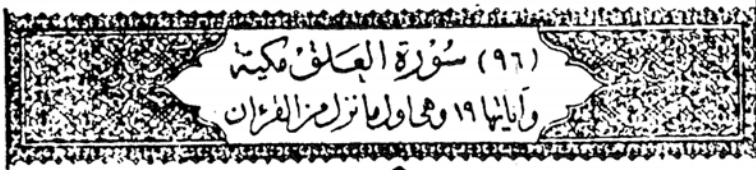 (٩٦) سُوْرَة العَلق مكيَّة
وَآياتها ١٩ وهى اول ما نزل من القرءان